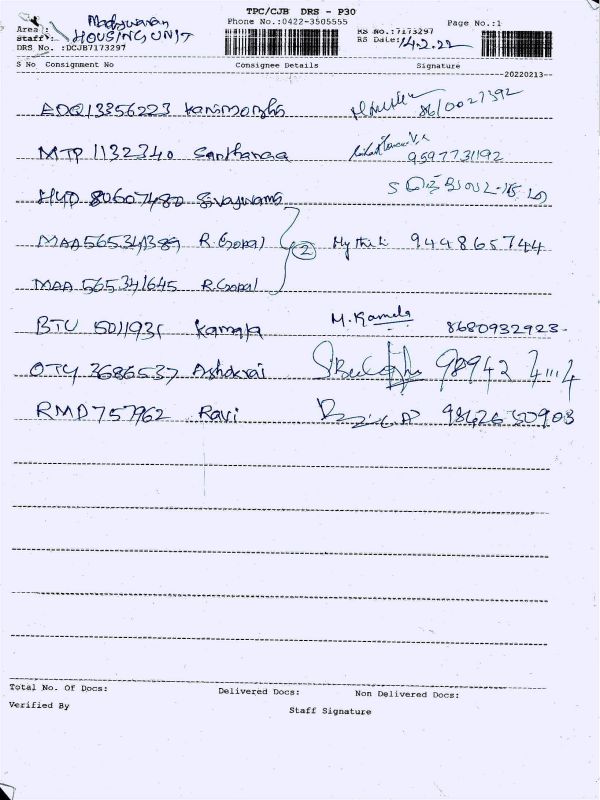 TPC/CJB DRS - P30
Phone No.:0422-3505555 Page No.:1
Area :
Staff: HOUSING UNIT RS No.:7173297
DRS No. :DCJB7173297 RS Date: 14.2.22
S No Consignment No Consignee Details Signature
20220213
EDQ13856223 Kanimozhi 8610027392
MTP 1132340 Santhanaa 9597731192
HYD 80607480
MAA565341389 R.Gopal 2 Mythili 944865744
MAA 565341645 R.Gopal
BTU 5011931 Kamala M. Kamala 8680932923
OTY 3686537 98942
RMD757962 Ravi 9842650903
Total No. Of Docs: Delivered Docs: Non Delivered Docs:
Verified By Staff Signature